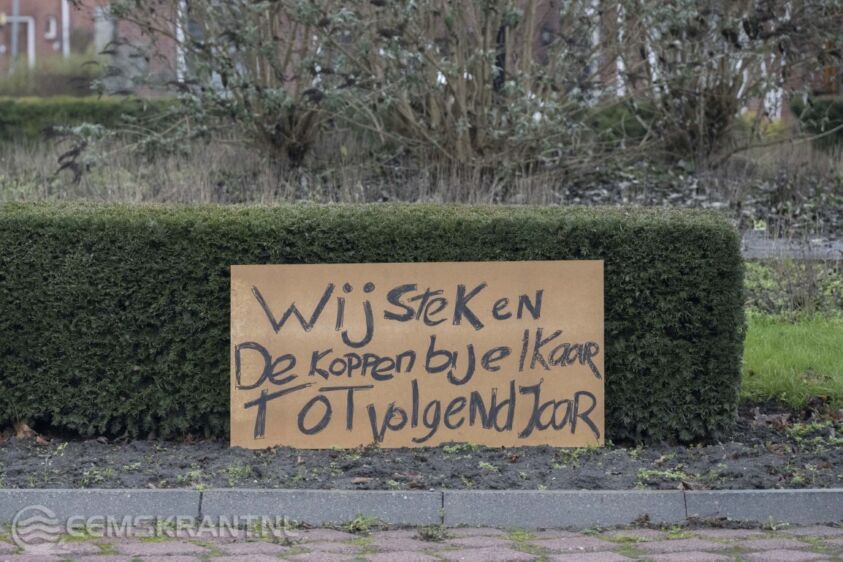 Wij steken
De koppen bij elkaar
Tot volgend Jaar
EEMSKRANT.NL